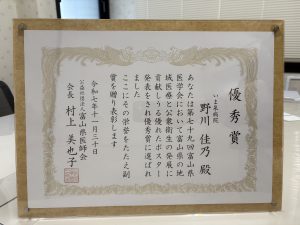 優秀賞
いま泉病院
野川 佳乃 殿
あなたは第七十九回富山県
医学会において富山県の地
域医療と公衆衛生の発展に
貢献しうる優れたポスター
発表をされ優秀賞に選ばれ
ました
ここにその栄誉をたたえ副
賞を贈り表彰します
令和七年十一月三十日
公益社団法人富山県医師会
会長 村上 美也子